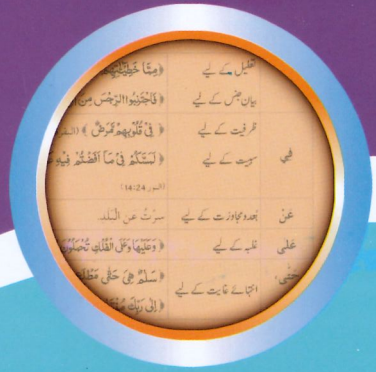 تعلیل کے لیے ﴿مِمَّا خَطِيْٓـٰٔتِهِمْ
بیان جنس کے لیے ﴿فَاجْتَنِبُوا الرِّجْسَ مِنَ
ظرفیت کے لیے ﴿فِيْ قُلُوْبِهِمْ مَّرَضٌ﴾
فِي سببیت کے لیے ﴿لَمَسَّكُمْ فِيْ مَآ اَفَضْتُمْ فِيْهِ
(النور 14:24)
عَنْ بُعدومجاوزت کے لیے سِرْتُ عَنِ الْبَلَدِ.
عَلٰی غلبہ کے لیے ﴿وَعَلَيْهَا وَعَلَى الْفُلْكِ تُحْمَلُوْنَ
حَتّٰی ﴿سَلٰمٌ هِيَ حَتّٰى مَطْلَعِ
انتہائے غایت کے لیے ﴿اِلٰى رَبِّكَ